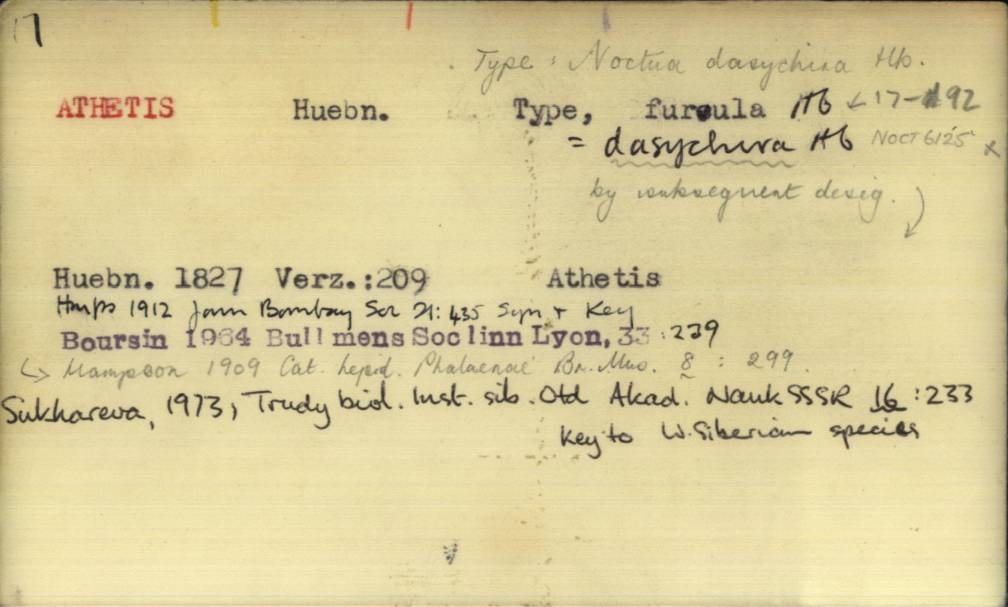 17
Type: Noctua dasychira Hb.
ATHETIS Huebn. Type, furvula Hb ← 17-1192
= dasychira Hb NOCT 6125 x
by subsequent desig.
Huebn. 1827 Verz.:209 Athetis
Hmps 1912 Journ Bombay Soc 21: 435 Syn + Key
Boursin 1964 Bull mens Soc linn Lyon, 33:239
↳ Hampson 1909 Cat. Lepid. Phalaenae Br. Mus. 8 : 299.
Sukhareva, 1973, Trudy biol. Inst. sib. Otd Akad. Nauk SSSR 16 :233
key to W. Siberian species